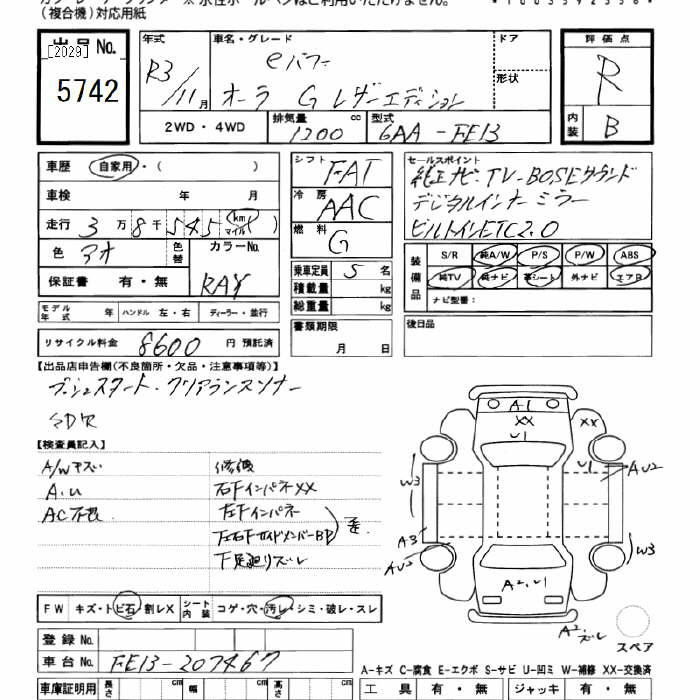 (複合機)対応用紙
出品No.
[2029]
5742
年式
R3/11月
車名・グレード
eパワー
オーラ G レザーエディション
ドア
形状
評価点
R
内装
B
2WD・4WD
排気量
1200 cc
型式
6AA-FE13
車歴
自家用・( )
車検
年 月
走行
3万8千545 (km マイル)
色
アオ
色替
カラーNo.
RAY
保証書
有・無
モデル年式
年
ハンドル
左・右
ディーラー・並行
リサイクル料金
8600
円 預託済
シフト
FAT
冷房
AAC
燃料
G
乗車定員
5名
積載量
kg
総重量
kg
書類期限
月 日
セールスポイント
純正ナビ・TV-BOSEサウンド
デジタルインナーミラー
ビルトインETC2.0
装備品
S/R 純A/W P/S P/W ABS
純TV 純ナビ 革シート 外ナビ エアB
ナビ型番:
後日品
【出品店申告欄(不良箇所・欠品・注意事項等)】
プッシュスタート・クリアランスソナー
【検査員記入】
A/Wキズ
A.U
AC不良
修復
右FインパネXX
左Fインパネ
左右FサイドメンバーBP
下足廻りズレ
A1
XX
U1
XX
U1
AU2
W3
A3
AU2
W3
A2.U1
A2.ズレ
スペア
FW
キズ・トビ石・割レX
シート内装
コゲ・穴・汚レ・シミ・破レ・スレ
登録No.
車台No.
FE13-207467
A-キズ C-腐食 E-エクボ S-サビ U-凹ミ W-補修 XX-交換済
車庫証明用
長さ
cm
幅
cm
高さ
cm
工具
有・無
ジャッキ
有・無